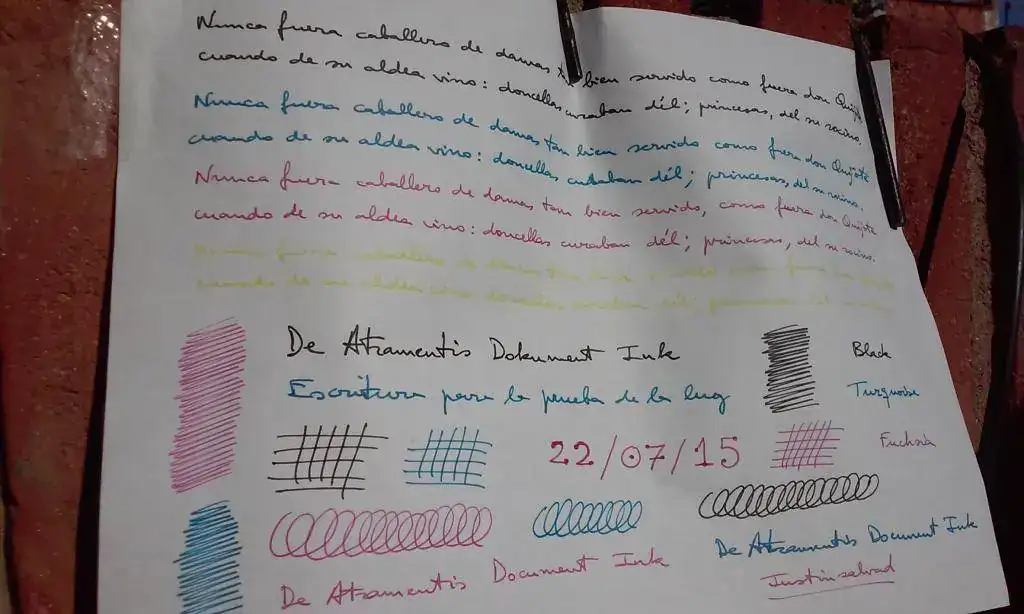 Nunca fuera caballero de damas bien servido como fuera don Quijote
cuando de su aldea vino: doncellas curaban dél; princesas, del su rocino.
Nunca fuera caballero de damas tan bien servido como fuera don Quijote
cuando de su aldea vino: doncellas curaban dél; princesas, del su rocino.
Nunca fuera caballero de damas, tan bien servido, como fuera don Quijote
cuando de su aldea vino: doncellas curaban dél; princesas, del su rocino.
Nunca fuera caballero de damas tan
cuando de su aldea vino doncellas curaban dél; princesas del su
De Atramentis Dokument Ink
Black
Escritura para la prueba de la luz
Turquoise
22/07/15
Fuchsia
De Atramentis Document Ink
De Atramentis Document Ink
Justinsalvad